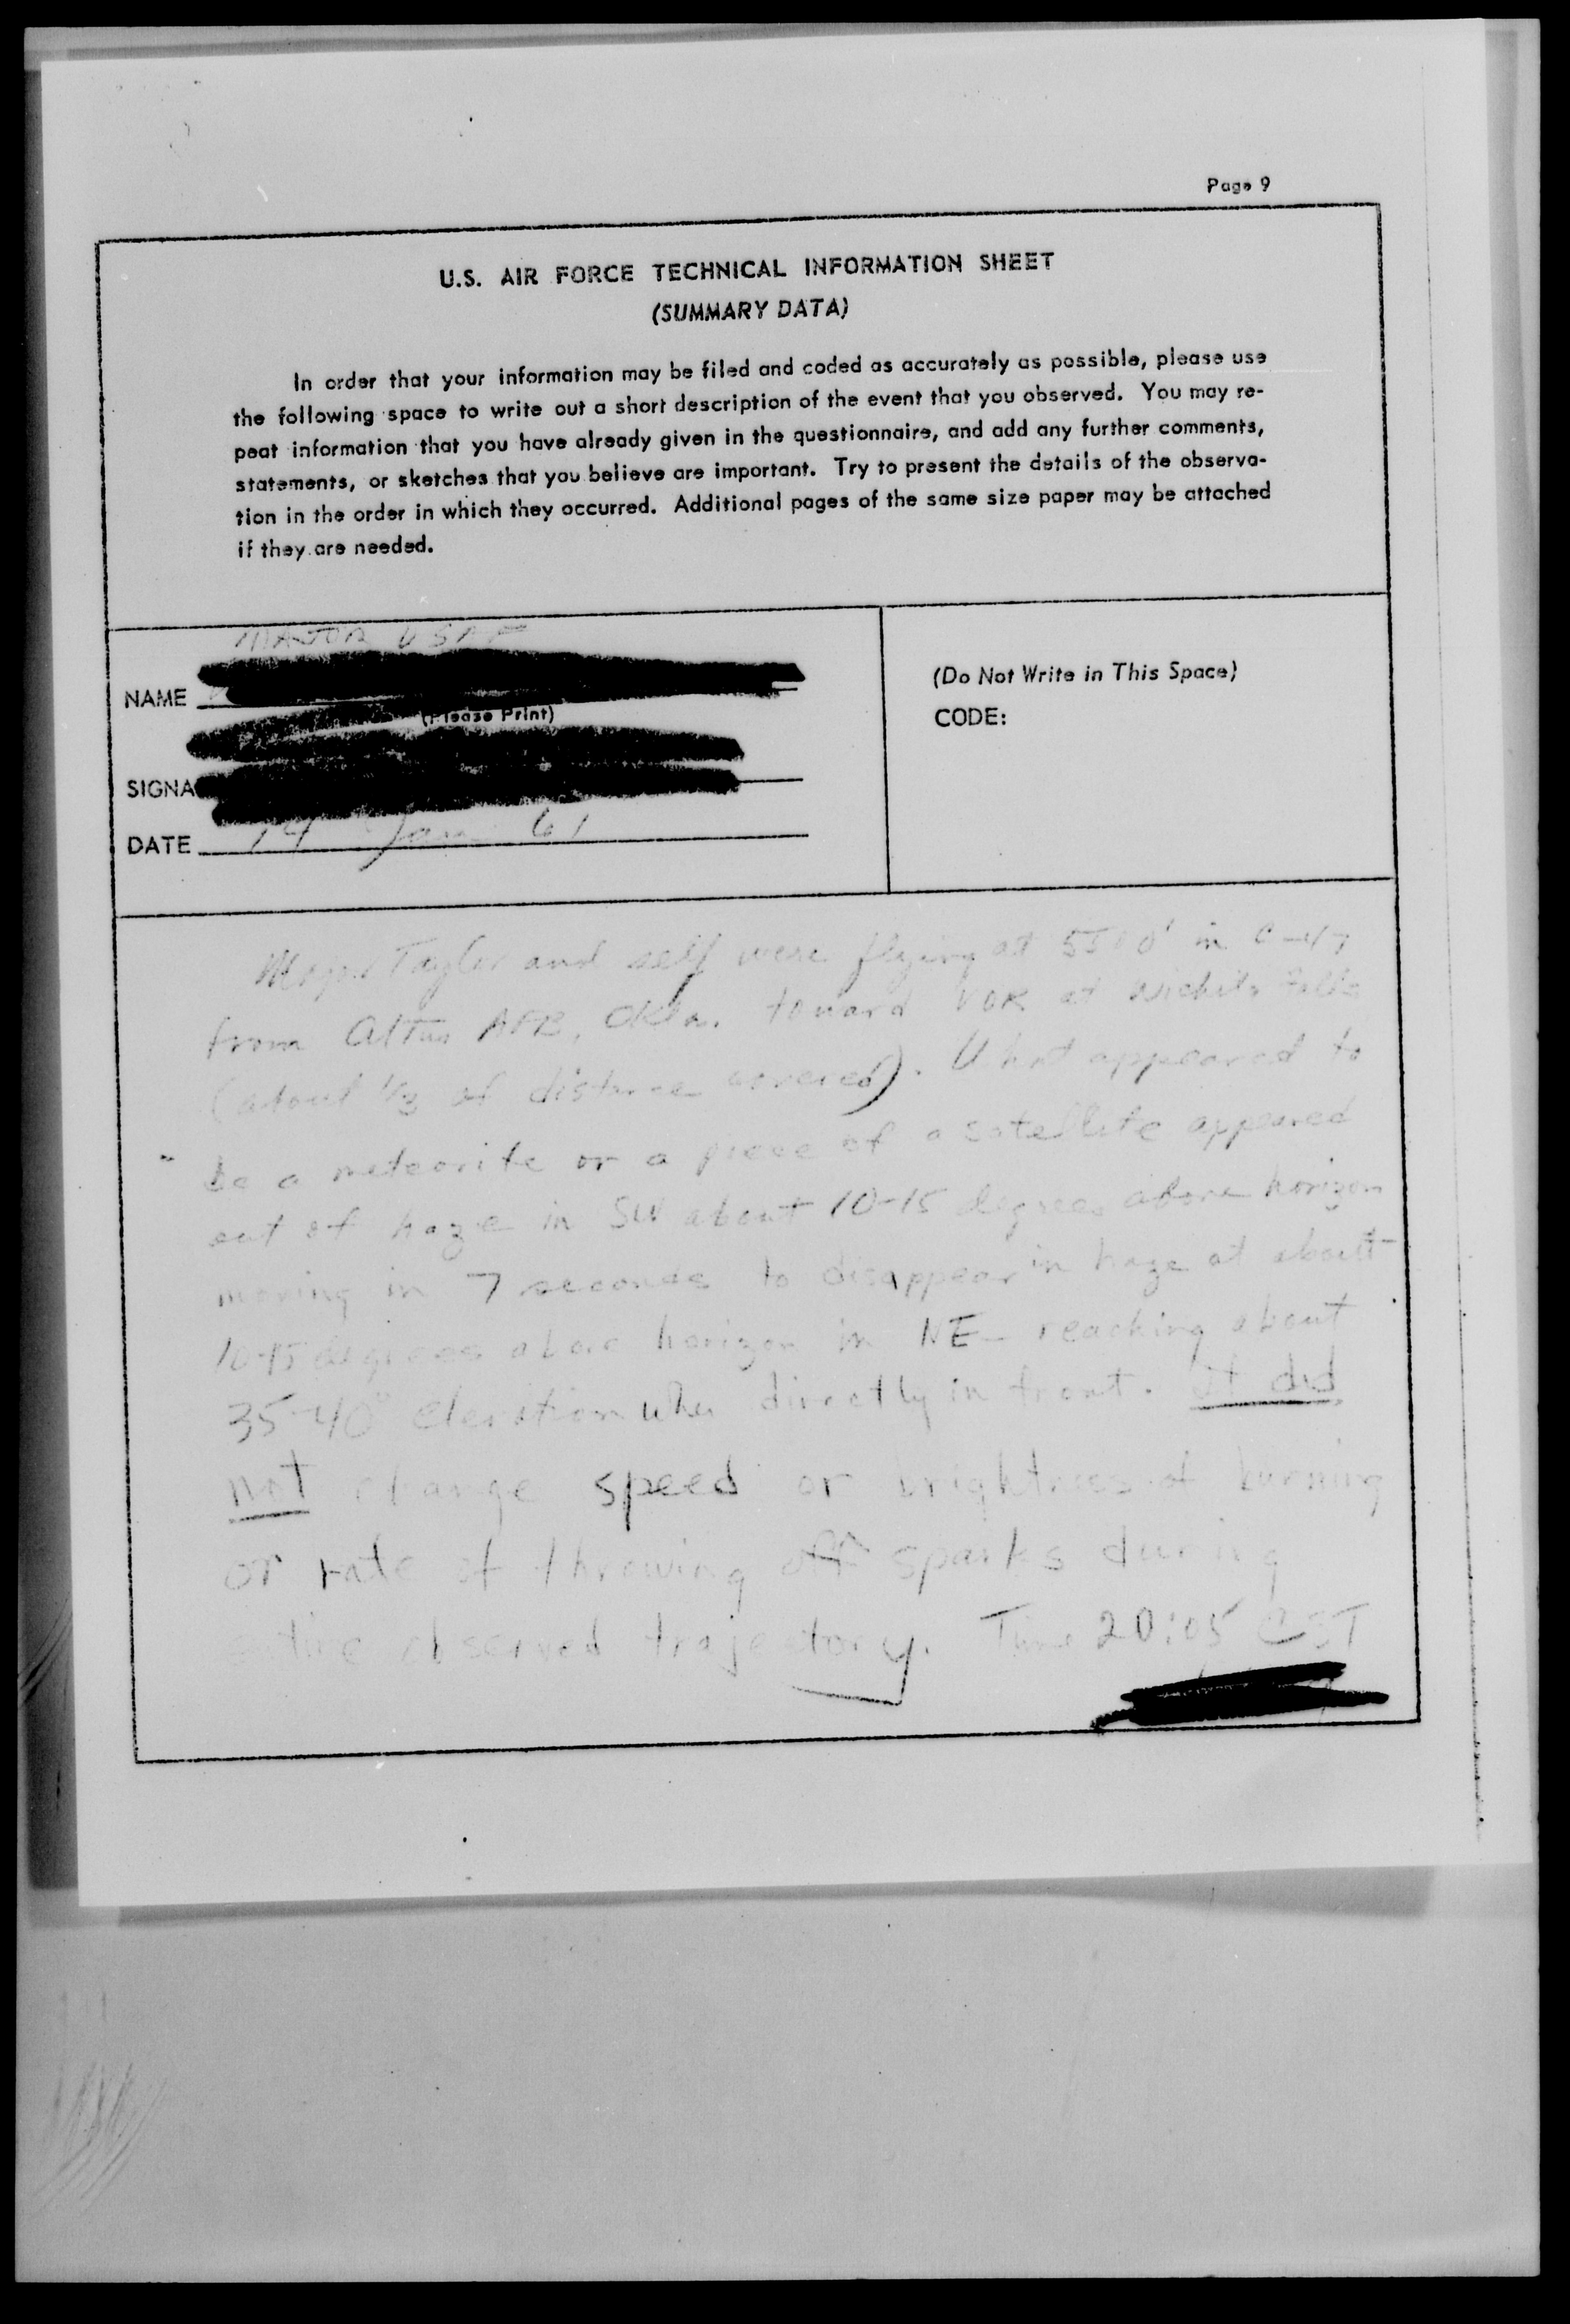 Page 9
U.S. AIR FORCE TECHNICAL INFORMATION SHEET
(SUMMARY DATA)
In order that your information may be filed and coded as accurately as possible, please use
the following space to write out a short description of the event that you observed. You may re-
peat information that you have already given in the questionnaire, and add any further comments,
statements, or sketches that you believe are important. Try to present the details of the observa-
tion in the order in which they occurred. Additional pages of the same size paper may be attached
if they are needed.
MAJOR USAF
NAME
(Please Print)
SIGNA
DATE 14 Jan 61
(Do Not Write in This Space)
CODE:
Major Taylor and self were flying at 5500' in C-47
from Altus AFB, Okla. toward VOR at Wichita Falls
(about 1/3 of distance covered). What appeared to
be a meteorite or a piece of a satellite appeared
out of haze in SW about 10-15 degrees above horizon
moving in 7 seconds to disappear in haze at about
10-15 degrees above horizon in NE - reaching about
35-40° elevation when directly in front. It did
not change speed or brightness of burning
or rate of throwing off sparks during
entire observed trajectory. Time 20:05 CST